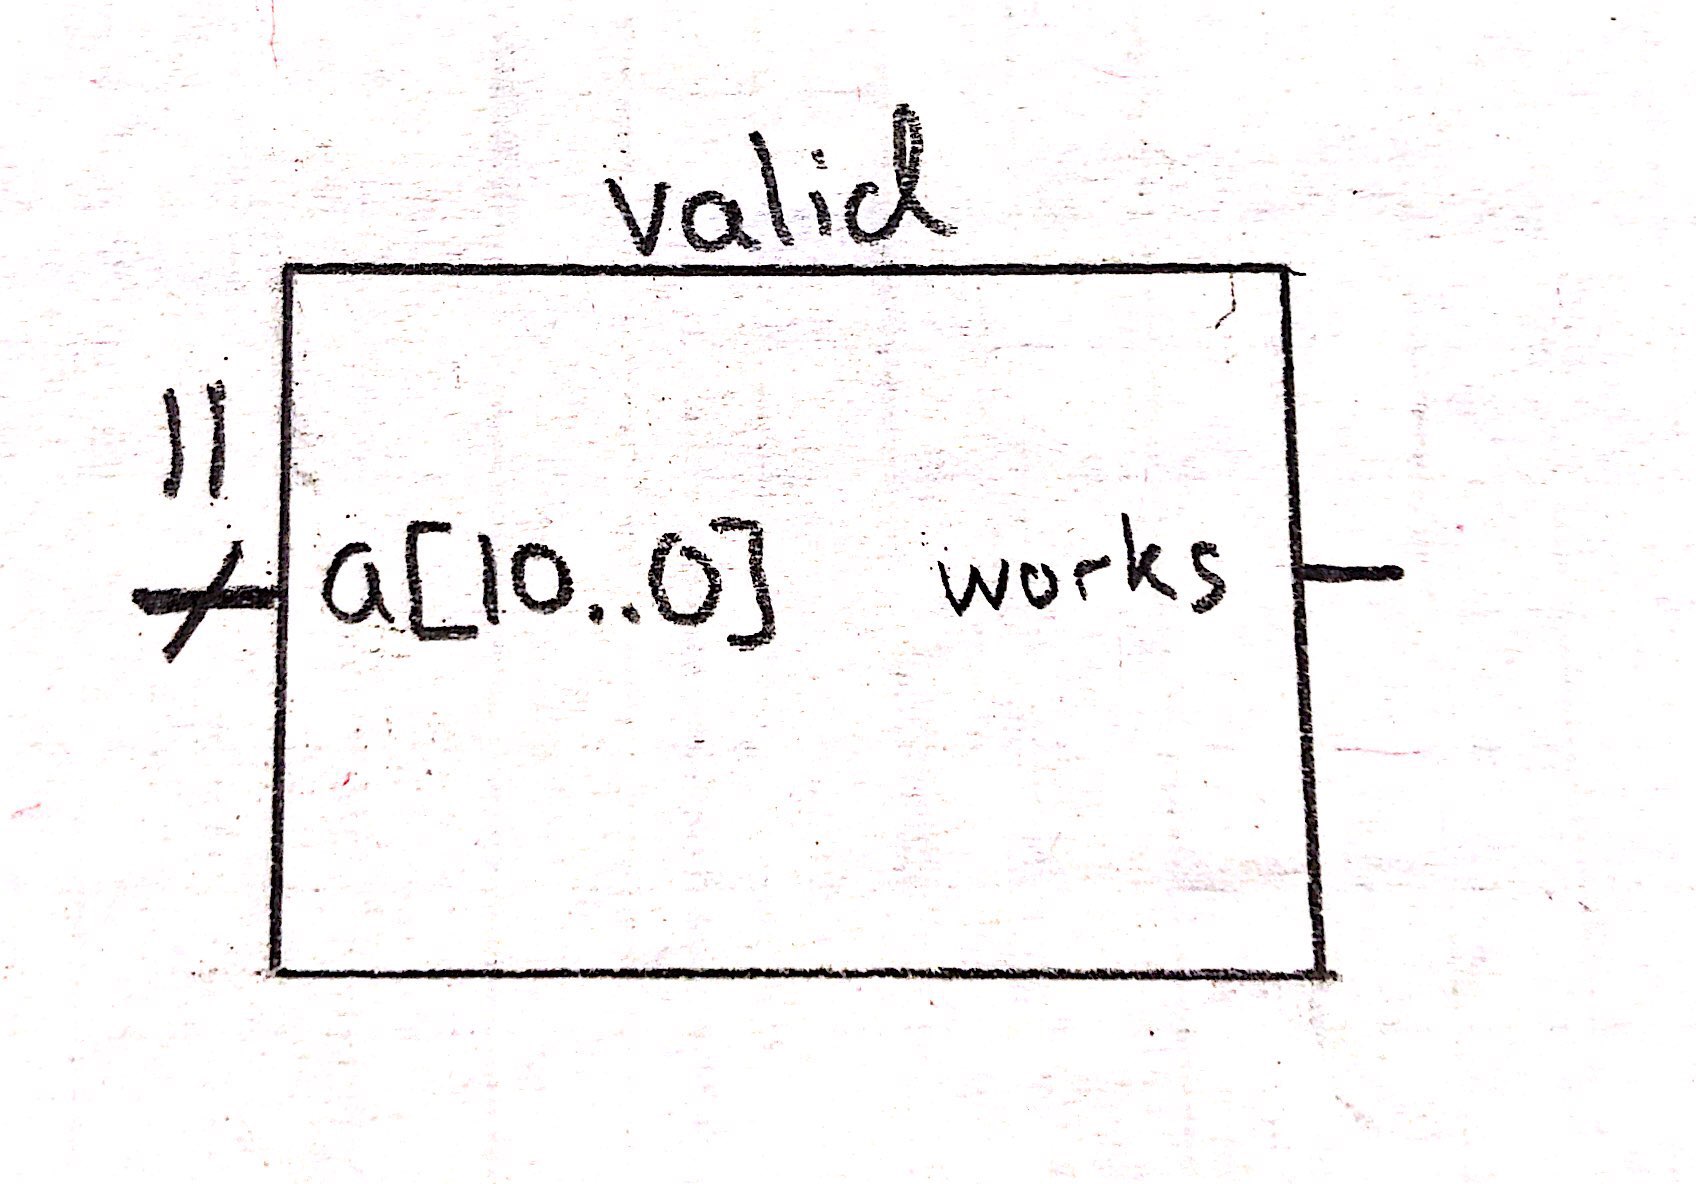 valid
11
a[10..0] works